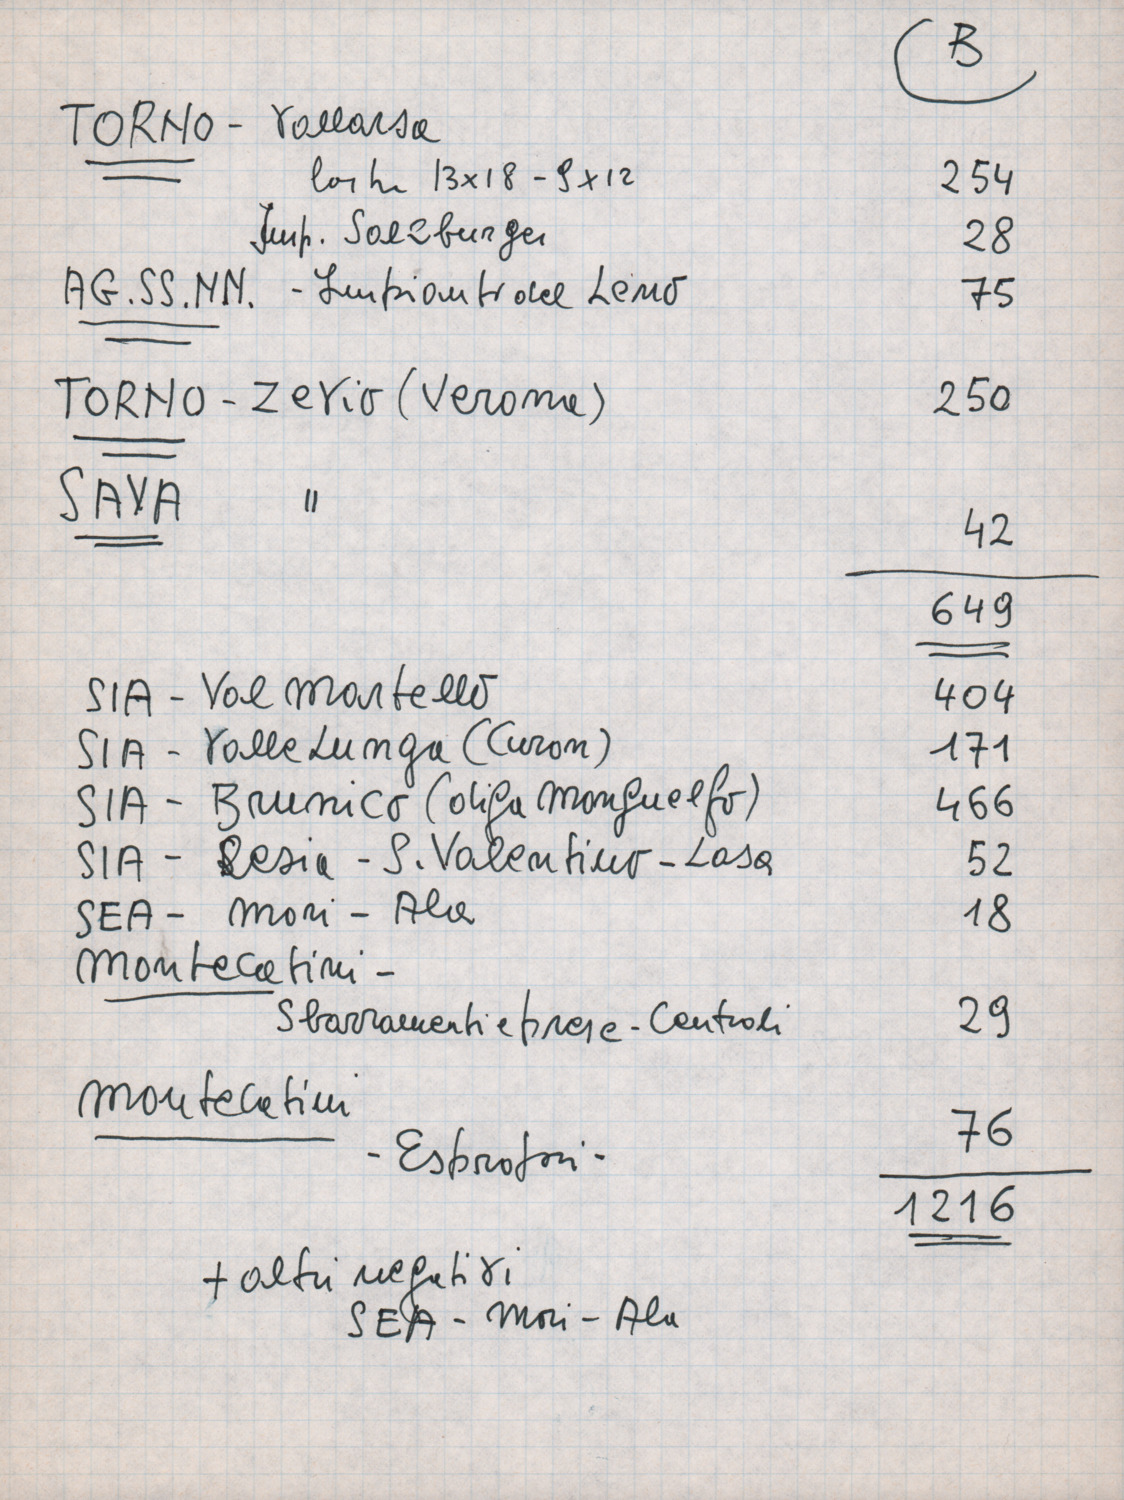 B
TORNO - Vallarsa
lastre 13x18 - 9x12 254
Imp. Salzburger 28
AG.SS.NN. - Impianto del Leno 75
TORNO - Zevio (Verona) 250
SAVA " 42
649
SIA - Val Martello 404
SIA - Valle Lunga (Curon) 171
SIA - Brunico (diga Monguelfo) 466
SIA - Resia - S. Valentino - Lasa 52
SEA - Mori - Ala 18
Montecatini -
Sbarramenti e prese - Centrali 29
Montecatini 76
- Espropri -
1216
+ altri negativi
SEA - Mori - Ala